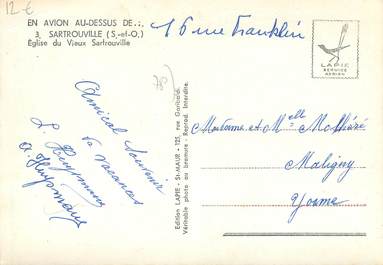 12 €
EN AVION AU-DESSUS DE...
3. SARTROUVILLE (S.-et-O.)
Église du Vieux Sartrouville
16 rue Franklin
LAPIE
SERVICE
AERIEN
(78)
Amical Souvenir
de vacances
Edition LAPIE - St-MAUR - 125, rue Garibaldi.
Véritable photo au bromure - Reprod. Interdite.
Madame et Melle
Maligny
Yonne